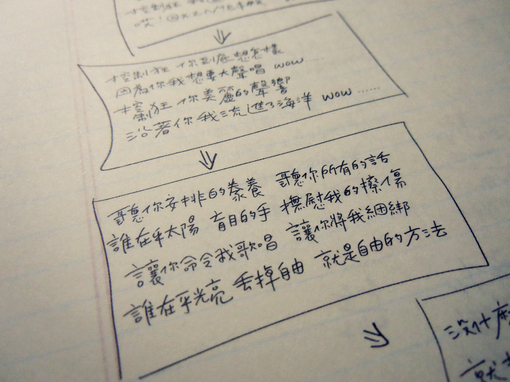 控制狂 你到底想怎樣
因為你我想要大聲唱 wow......
控制狂 你美麗的聲響
沿著你我流進了海洋 wow......
聽你安排的豢養 聽你所有的話
誰在乎太陽 盲目的手 撫慰我的擦傷
讓你命令我歌唱 讓你將我綑綁
誰在乎光亮 丟掉自由 就是自由的方法
沒什麼
就